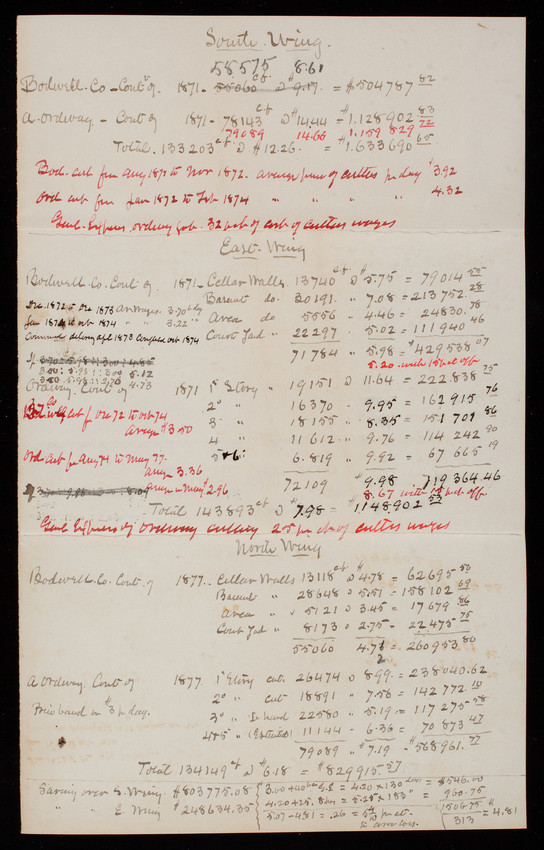 South Wing.
58575 8.61
Bodwell Co - Cont of 1871 - 55060 cf @ $9.17 = $504787 82
A. Ordway - Cont of 1871 - 78143 cf @ $14.44 = $1.128902 83
79089 14.66 $1.159 829 72
Total. 133203 cf @ $12.26. = $1.633690 65
Bod. cut from Aug 1871 to Nov 1872. average price of cutters per day $3.92
Ord cut from Jan 1872 to Feb 1874 " " " " 4.32
Genl. Expenses ordway Gov. 32 pct of cost of cutters wages
East Wing
Bodwell. Co. Cont of 1871 - Cellar Walls. 13740 cf @ $5.75 = 79014
Dec. 1872 to Dec 1873 Av. Wages. 3.70 Basmt do. 30191. " 7.08 = 213752. 28
Jan 1874 to 1874 " " 3.22 Area do 5556 - 4.46 = 24830. 78
Court Yard " 22297 - 5.02 = 111940 46
71784 " 5.98 = $429538 07
5.20 with 15 pct off
3.80. 5.98 : : 4.73
Ordway. Cont of 1871 1st Story " 19151 @ 11.64 = 222.838 75
2d " 16370 - 9.95 = 162915 76
cut fr Dec 72 to Oct 74 3d " 18155 " 8.35 = 151701 86
Average $3.50 4 " 11612 - " 9.76 = 114 242 90
Ord cut fr Aug 74 to May 77. 5 & 6: 6.819 " 9.92 = 67 665 19
average 3.36
72109 $9.98 719364.46
average in May $2.96 8.67 with pct off
Total 143893 cf @ $7.98 = $1148902 53
Genl. Expenses of Ordway cutting 25 per ct of cutters wages
North Wing
Bodwell. Co. Cont. of 1877. Cellar Walls 13118 cf @ $4.78 = 62695 50
Basmt " 28648 @ 5.51 = 158102 69
Area " 5121 @ 3.45 = 17679 86
Court Yard " 8173 @ 2.75 - 22475 75
55060 4.73 = 260953 80
A Ordway. Cont of 1877 1st Story cut. 26474 @ 8.99 = 238040.62
Price based on $3 pr day. 2d " cut 18891 " 7.56 = 142 772 10
3d " In hand 22580 " 5.19 = 117 275 58
4 & 5 " (Estimated) 11144 - 6.36 = 70 873 47
79089 " 7.19 - $568961. 77
Total 134149 cf @ $6.18 = $829915. 57
Saving over S. Wing. $803775.08 = 4.20 x 130 = $546.00
" " E. Wing $248634.35 4.20 + 25. = 5.25 x 183 = 960.75
5.07 - 4.81 = .26 = 1506.75
313 = $4.81